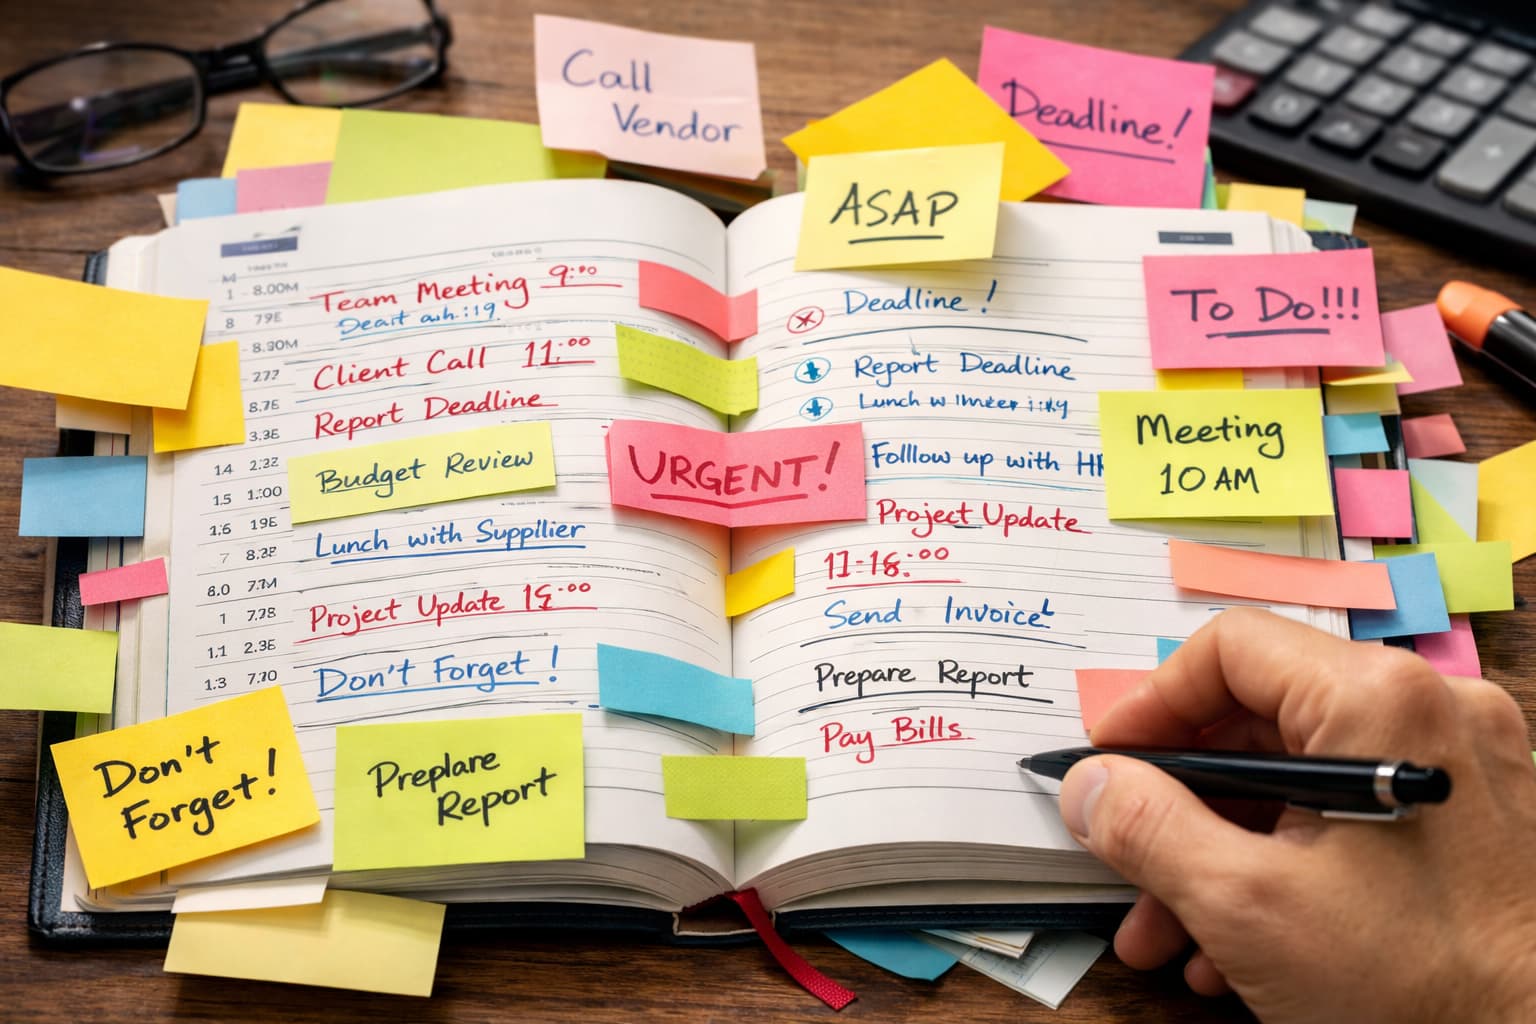 Call
Vendor
Deadline!
ASAP
To Do!!!
Meeting
10 AM
1 8.00M
Team Meeting 9:00
8 79E
8.30M
Client Call 11:00
277
8.7E
Report Deadline
3.3E
14 2.32
Budget Review
15 1:00
1,6 19E
Lunch with Suppilier
7 8.2F
8.0 7.7M
1 7.28
Project Update
1.1 2.3E
1.3 7.70
Don't Forget !
Don't
Forget!
Preplare
Report
URGENT!
Deadline !
Report Deadline
Lunch w
Folllow up with HR
Project Update
11-18:00
Send Invoice
Prepare Report
Pay Bills